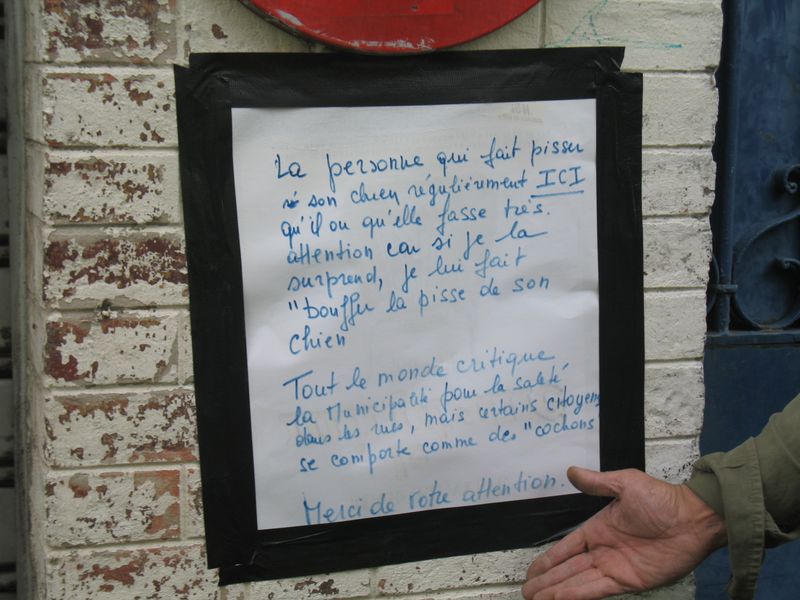 La personne qui fait pisser
son chien régulièrement ICI
qu'il ou qu'elle fasse très.
attention car si je la
surprend, je lui fait
"bouffer la pisse de son
chien"
Tout le monde critique
la Municipalité pour la saleté
dans les rues, mais certains citoyens
se comporte comme des "cochons
Merci de votre attention.